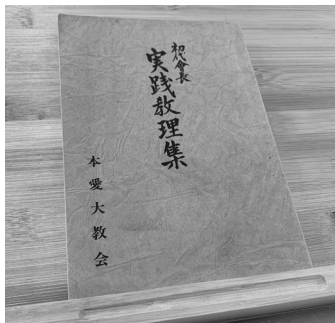 初代會長
実践教理集
本愛大教会